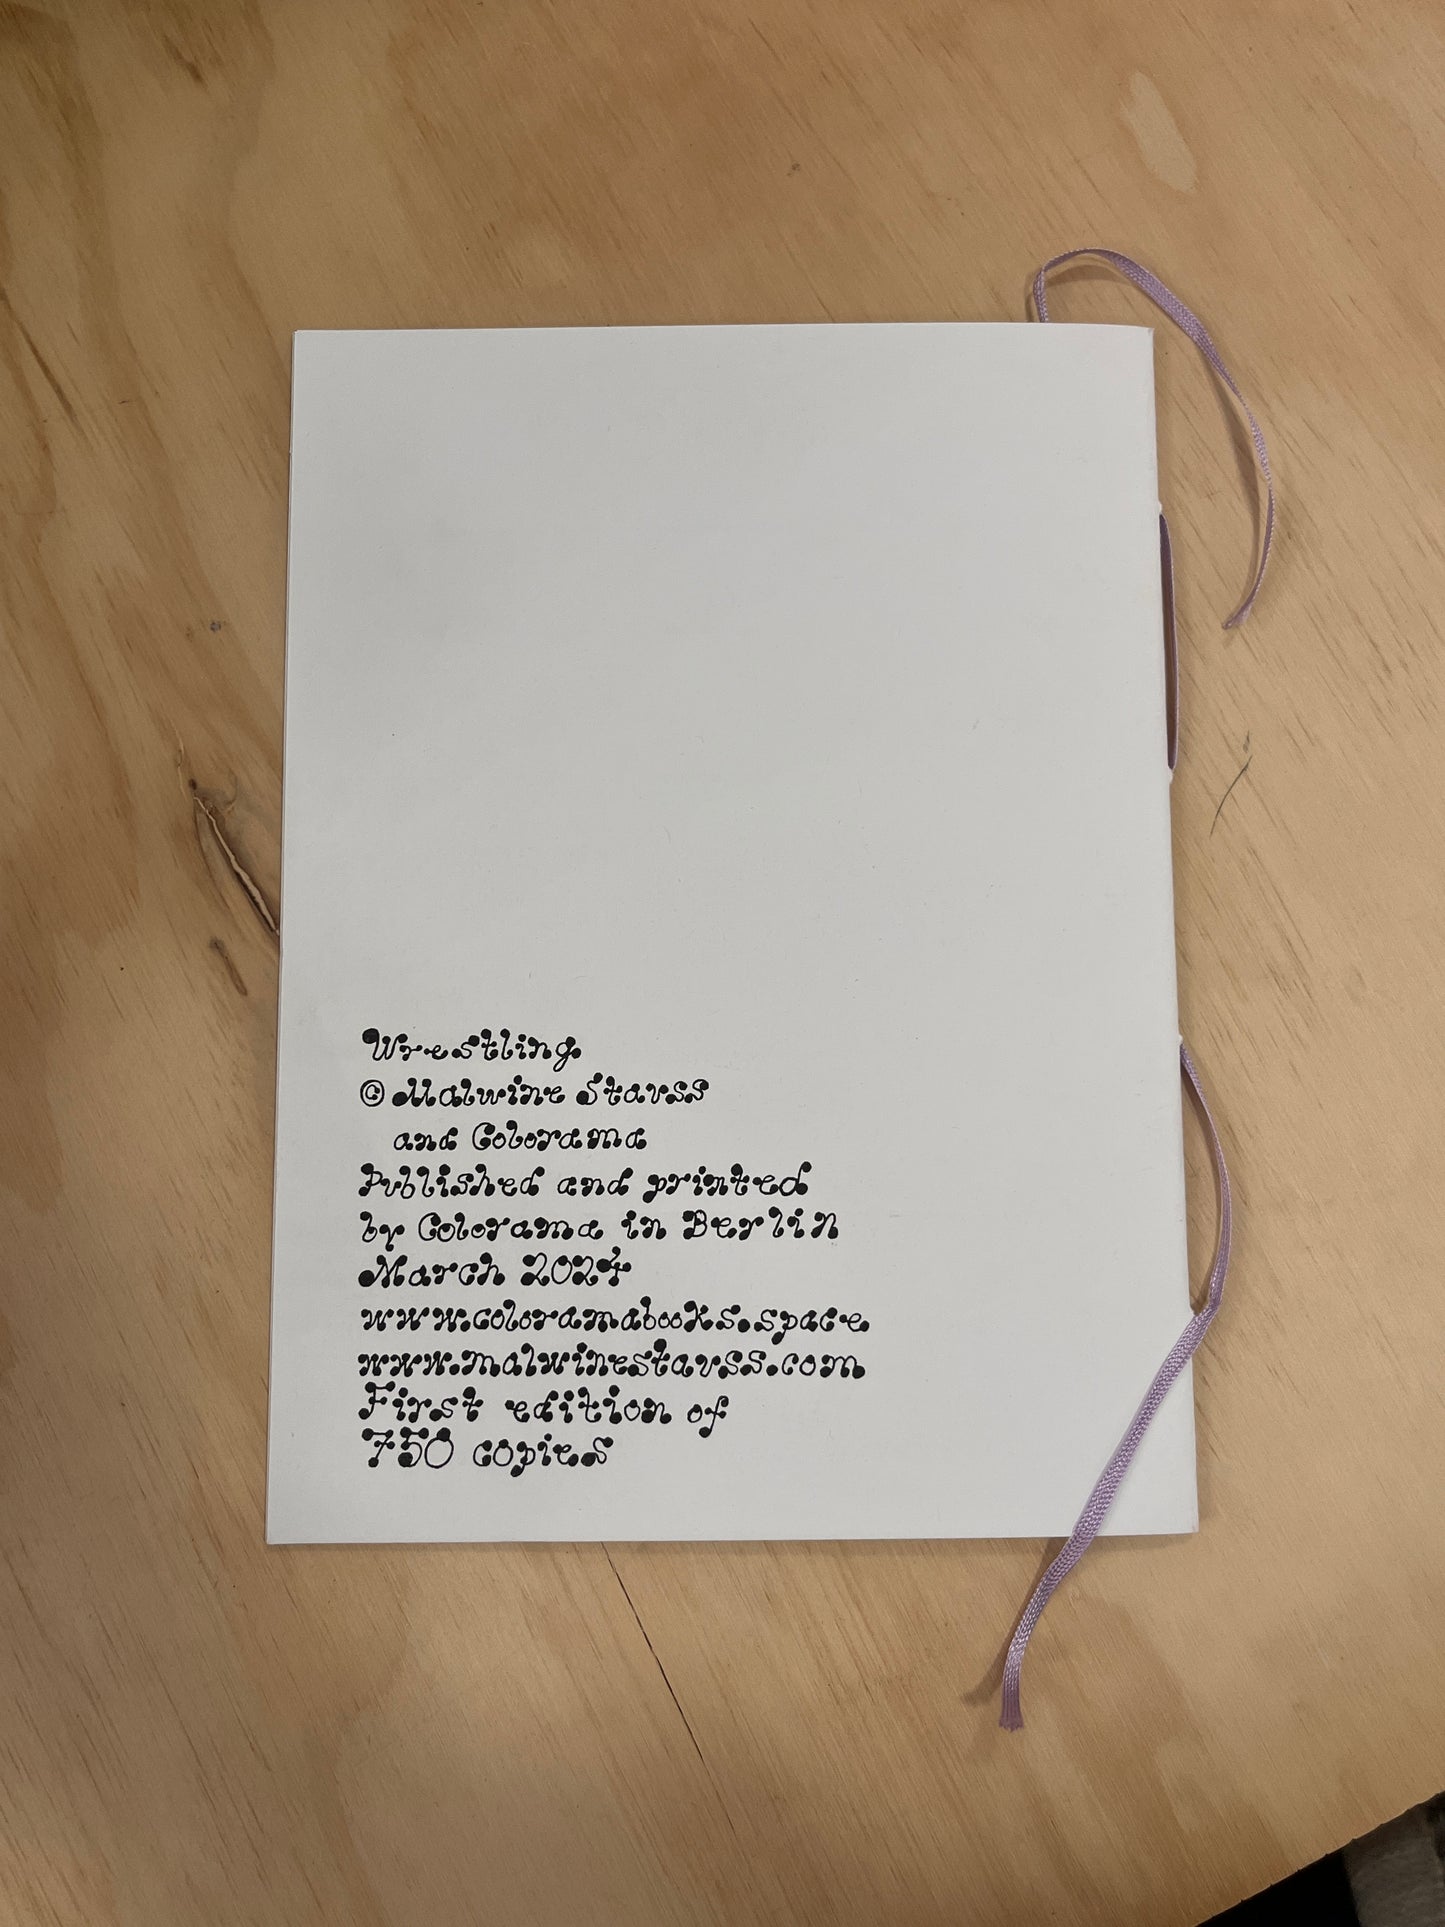 Wrestling
© Malwine Stauss
and Colorama
Published and printed
by Colorama in Berlin
March 2024
www.coloramabooks.space
www.malwinestauss.com
First edition of
750 copies